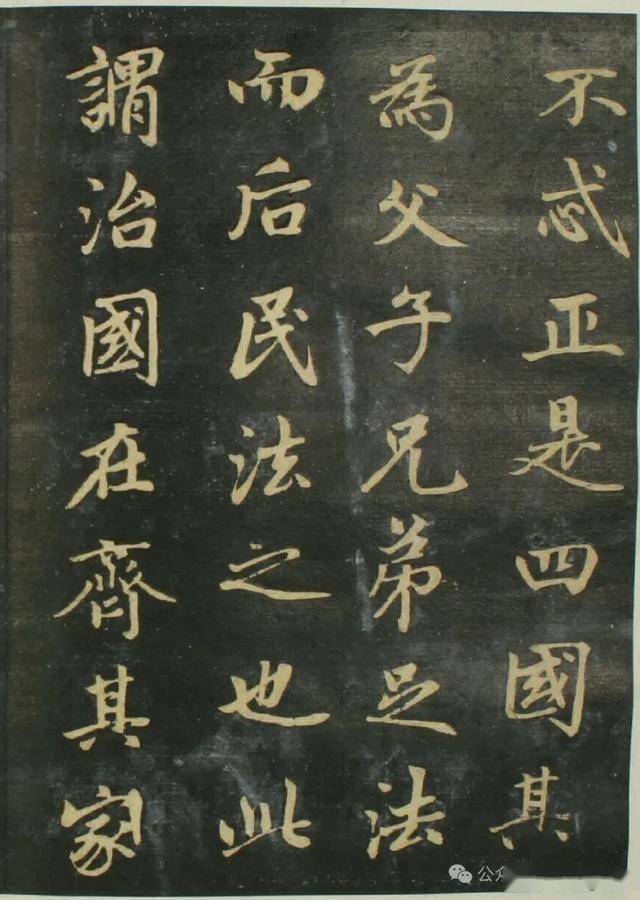 不忒正是四國其
為父子兄弟足法
而后民法之也此
謂治國在齊其家
公众